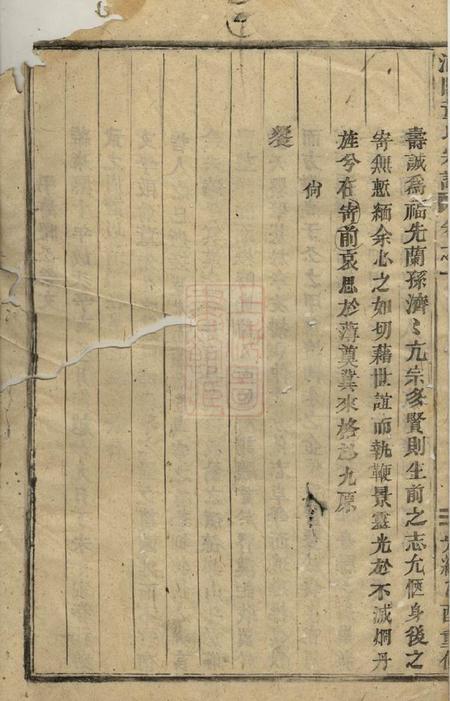 壽誠爲福先蘭孫濟〻亢宗多賢則生前之志允愜身後之
寄無慙緬余心之如切藉世誼而執鞭景靈光於不滅烱丹
旌兮在寄前哀思於薄奠冀來格於九原
尙
饗